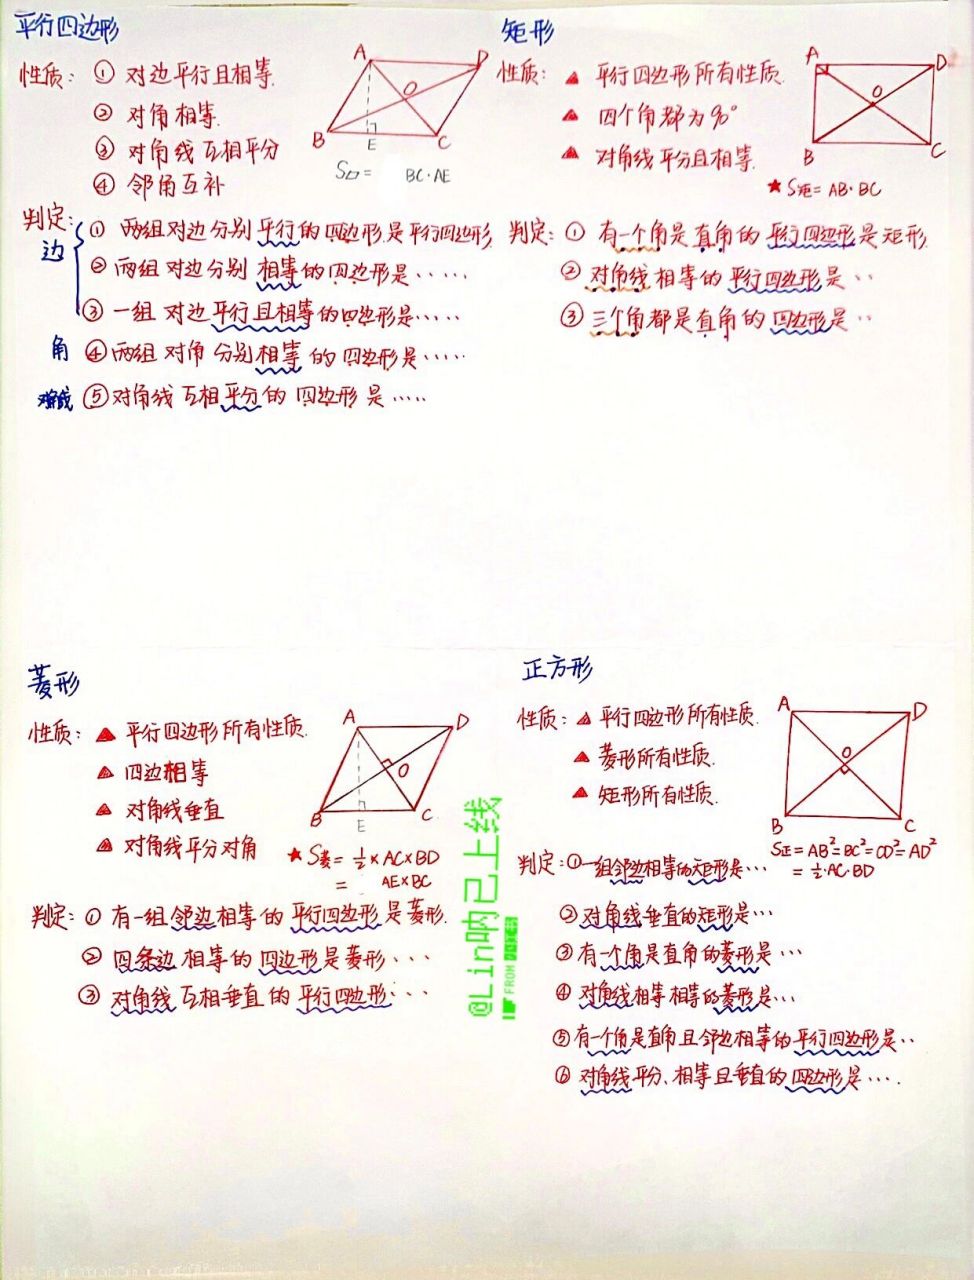 平行四边形
性质: ① 对边平行且相等.
② 对角相等.
③ 对角线互相平分
④ 邻角互补
A
D
O
B
E
C
S▱= BC·AE
判定:
边
① 两组对边分别平行的四边形是平行四边形.
② 两组对边分别相等的四边形是......
③ 一组对边平行且相等的四边形是.....
角 ④ 两组对角分别相等的四边形是.....
对角线 ⑤ 对角线互相平分的四边形是.....
矩形
性质: ▲ 平行四边形所有性质.
▲ 四个角都为90°
▲ 对角线平分且相等.
A
D
O
B
C
★ S矩= AB·BC
判定: ① 有一个角是直角的平行四边形是矩形.
② 对角线相等的平行四边形是..
③ 三个角都是直角的四边形是..
菱形
性质: ▲ 平行四边形所有性质.
▲ 四边相等
▲ 对角线垂直
▲ 对角线平分对角
A
D
O
B
E
C
★ S菱= ½×AC×BD
= AE×BC
判定: ① 有一组邻边相等的平行四边形是菱形.
② 四条边相等的四边形是菱形...
③ 对角线互相垂直的平行四边形...
正方形
性质: ▲ 平行四边形所有性质.
▲ 菱形所有性质.
▲ 矩形所有性质.
A
D
O
B
C
S正=AB²=BC²=CD²=AD²
= ½·AC·BD
判定: ① 一组邻边相等的矩形是...
② 对角线垂直的矩形是...
③ 有一个角是直角的菱形是...
④ 对角线相等相等的菱形是...
⑤ 有一个角是直角且邻边相等的平行四边形是..
⑥ 对角线平分、相等且垂直的四边形是....
@Lin呐已上线
FROM 小红书